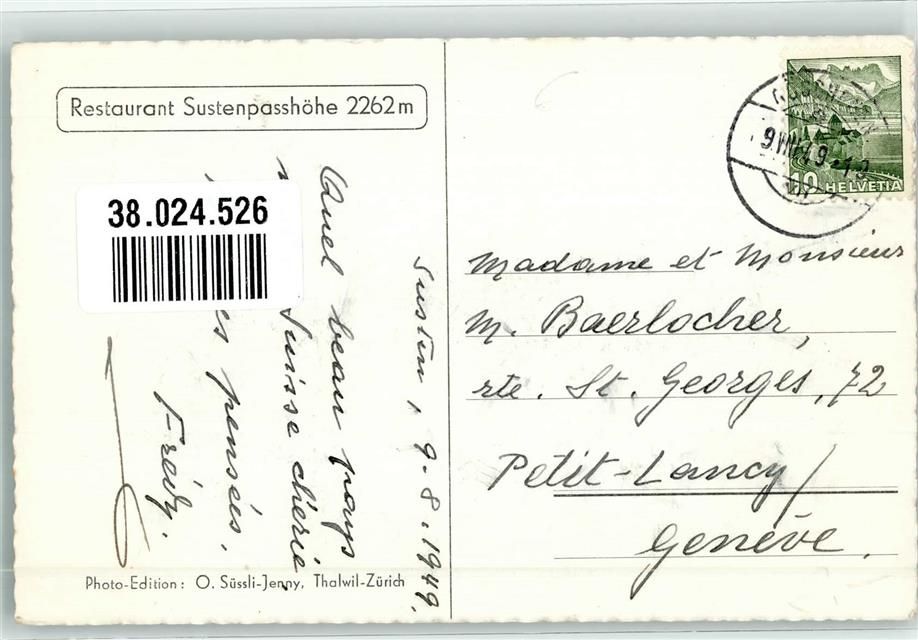 Restaurant Sustenpasshöhe 2262m
38.024.526
Susten, 9.8.1949.
Quel beau pays
Suisse chérie
pensées.
Fredy.
Photo-Edition: O. Süssli-Jenny, Thalwil-Zürich
9.VIII.49
10 HELVETIA
Madame et Monsieur
M. Baerlocher,
rte. St. Georges, 72
Petit-Lancy/
Genève.